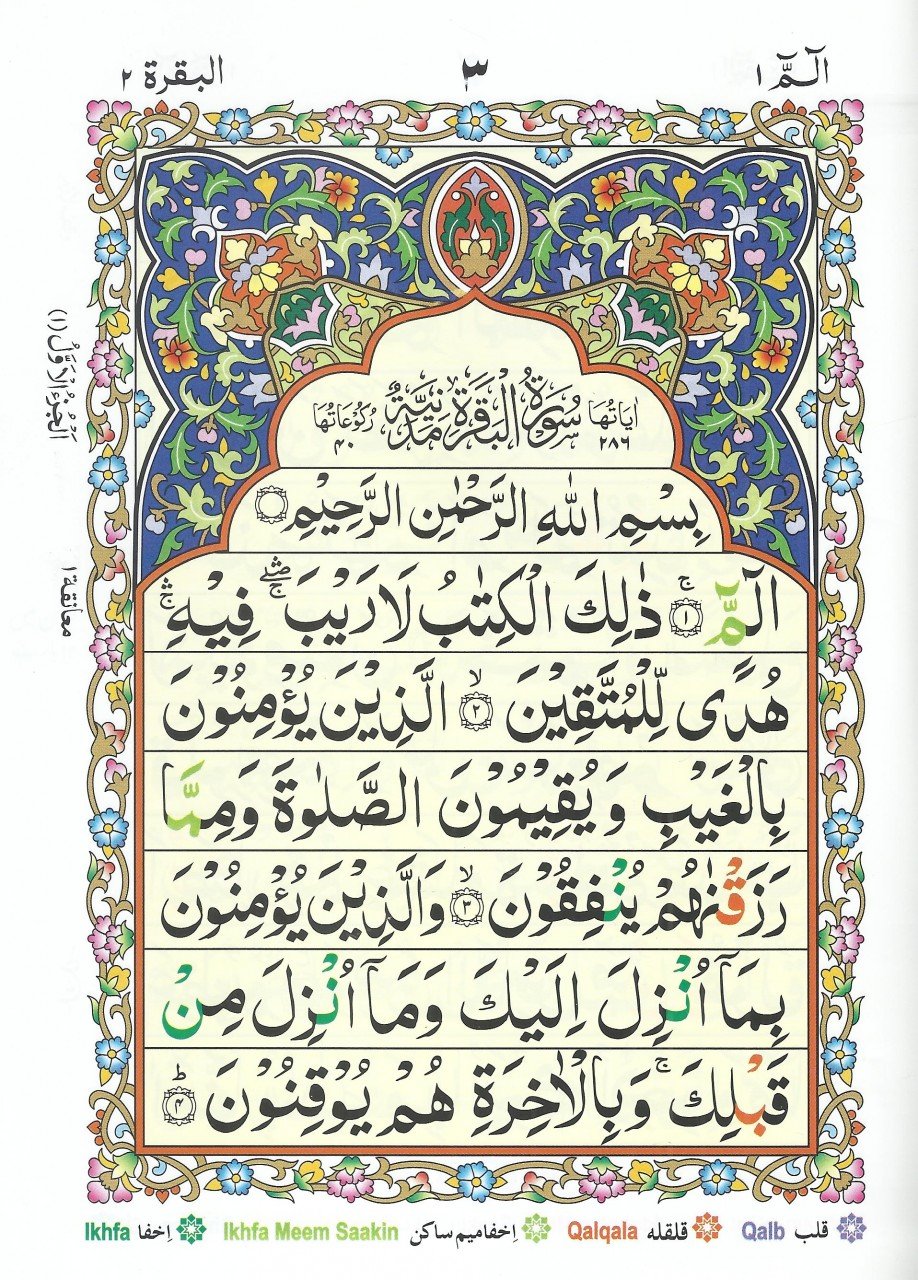 الٓمّٓ ١
٣
البقرة ٢
اَلْجُزْءُ الْاَوَّلُ (١)
معانقة ١
اٰيَاتُهَا ٢٨٦ سُوْرَةُ الْبَقَرَةِ مَدَنِيَّةٌ رُكُوْعَاتُهَا ٤٠
بِسْمِ اللّٰهِ الرَّحْمٰنِ الرَّحِيْمِ
الٓمّٓ ۚ ﴿١﴾ ذٰلِكَ الْكِتٰبُ لَا رَيْبَ ۛۖۚ فِيْهِ ۛۚ
هُدًى لِّلْمُتَّقِيْنَ ۙ ﴿٢﴾ الَّذِيْنَ يُؤْمِنُوْنَ
بِالْغَيْبِ وَيُقِيْمُوْنَ الصَّلٰوةَ وَمِمَّا
رَزَقْنٰهُمْ يُنْفِقُوْنَ ۙ ﴿٣﴾ وَالَّذِيْنَ يُؤْمِنُوْنَ
بِمَآ اُنْزِلَ اِلَيْكَ وَمَآ اُنْزِلَ مِنْ
قَبْلِكَ ۚ وَبِالْاٰخِرَةِ هُمْ يُوْقِنُوْنَ ؕ ﴿٤﴾
قلب Qalb قلقله Qalqala اِخفامیم ساکن Ikhfa Meem Saakin اِخفا Ikhfa